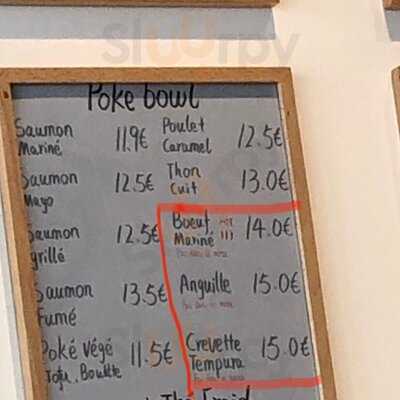 Sluurpy
Poke bowl
Saumon
Mariné
11.9€
Saumon
Mayo
12.5€
Saumon
grillé
12.5€
Saumon
Fumé
13.5€
Poké Végé
Tofu,
11.5€
Poulet
Caramel
12.5€
Thon
Cuit
13.0€
Boeuf
Mariné
14.0€
Anguille
15.0€
Crevette
Tempura
15.0€
Thé Froid